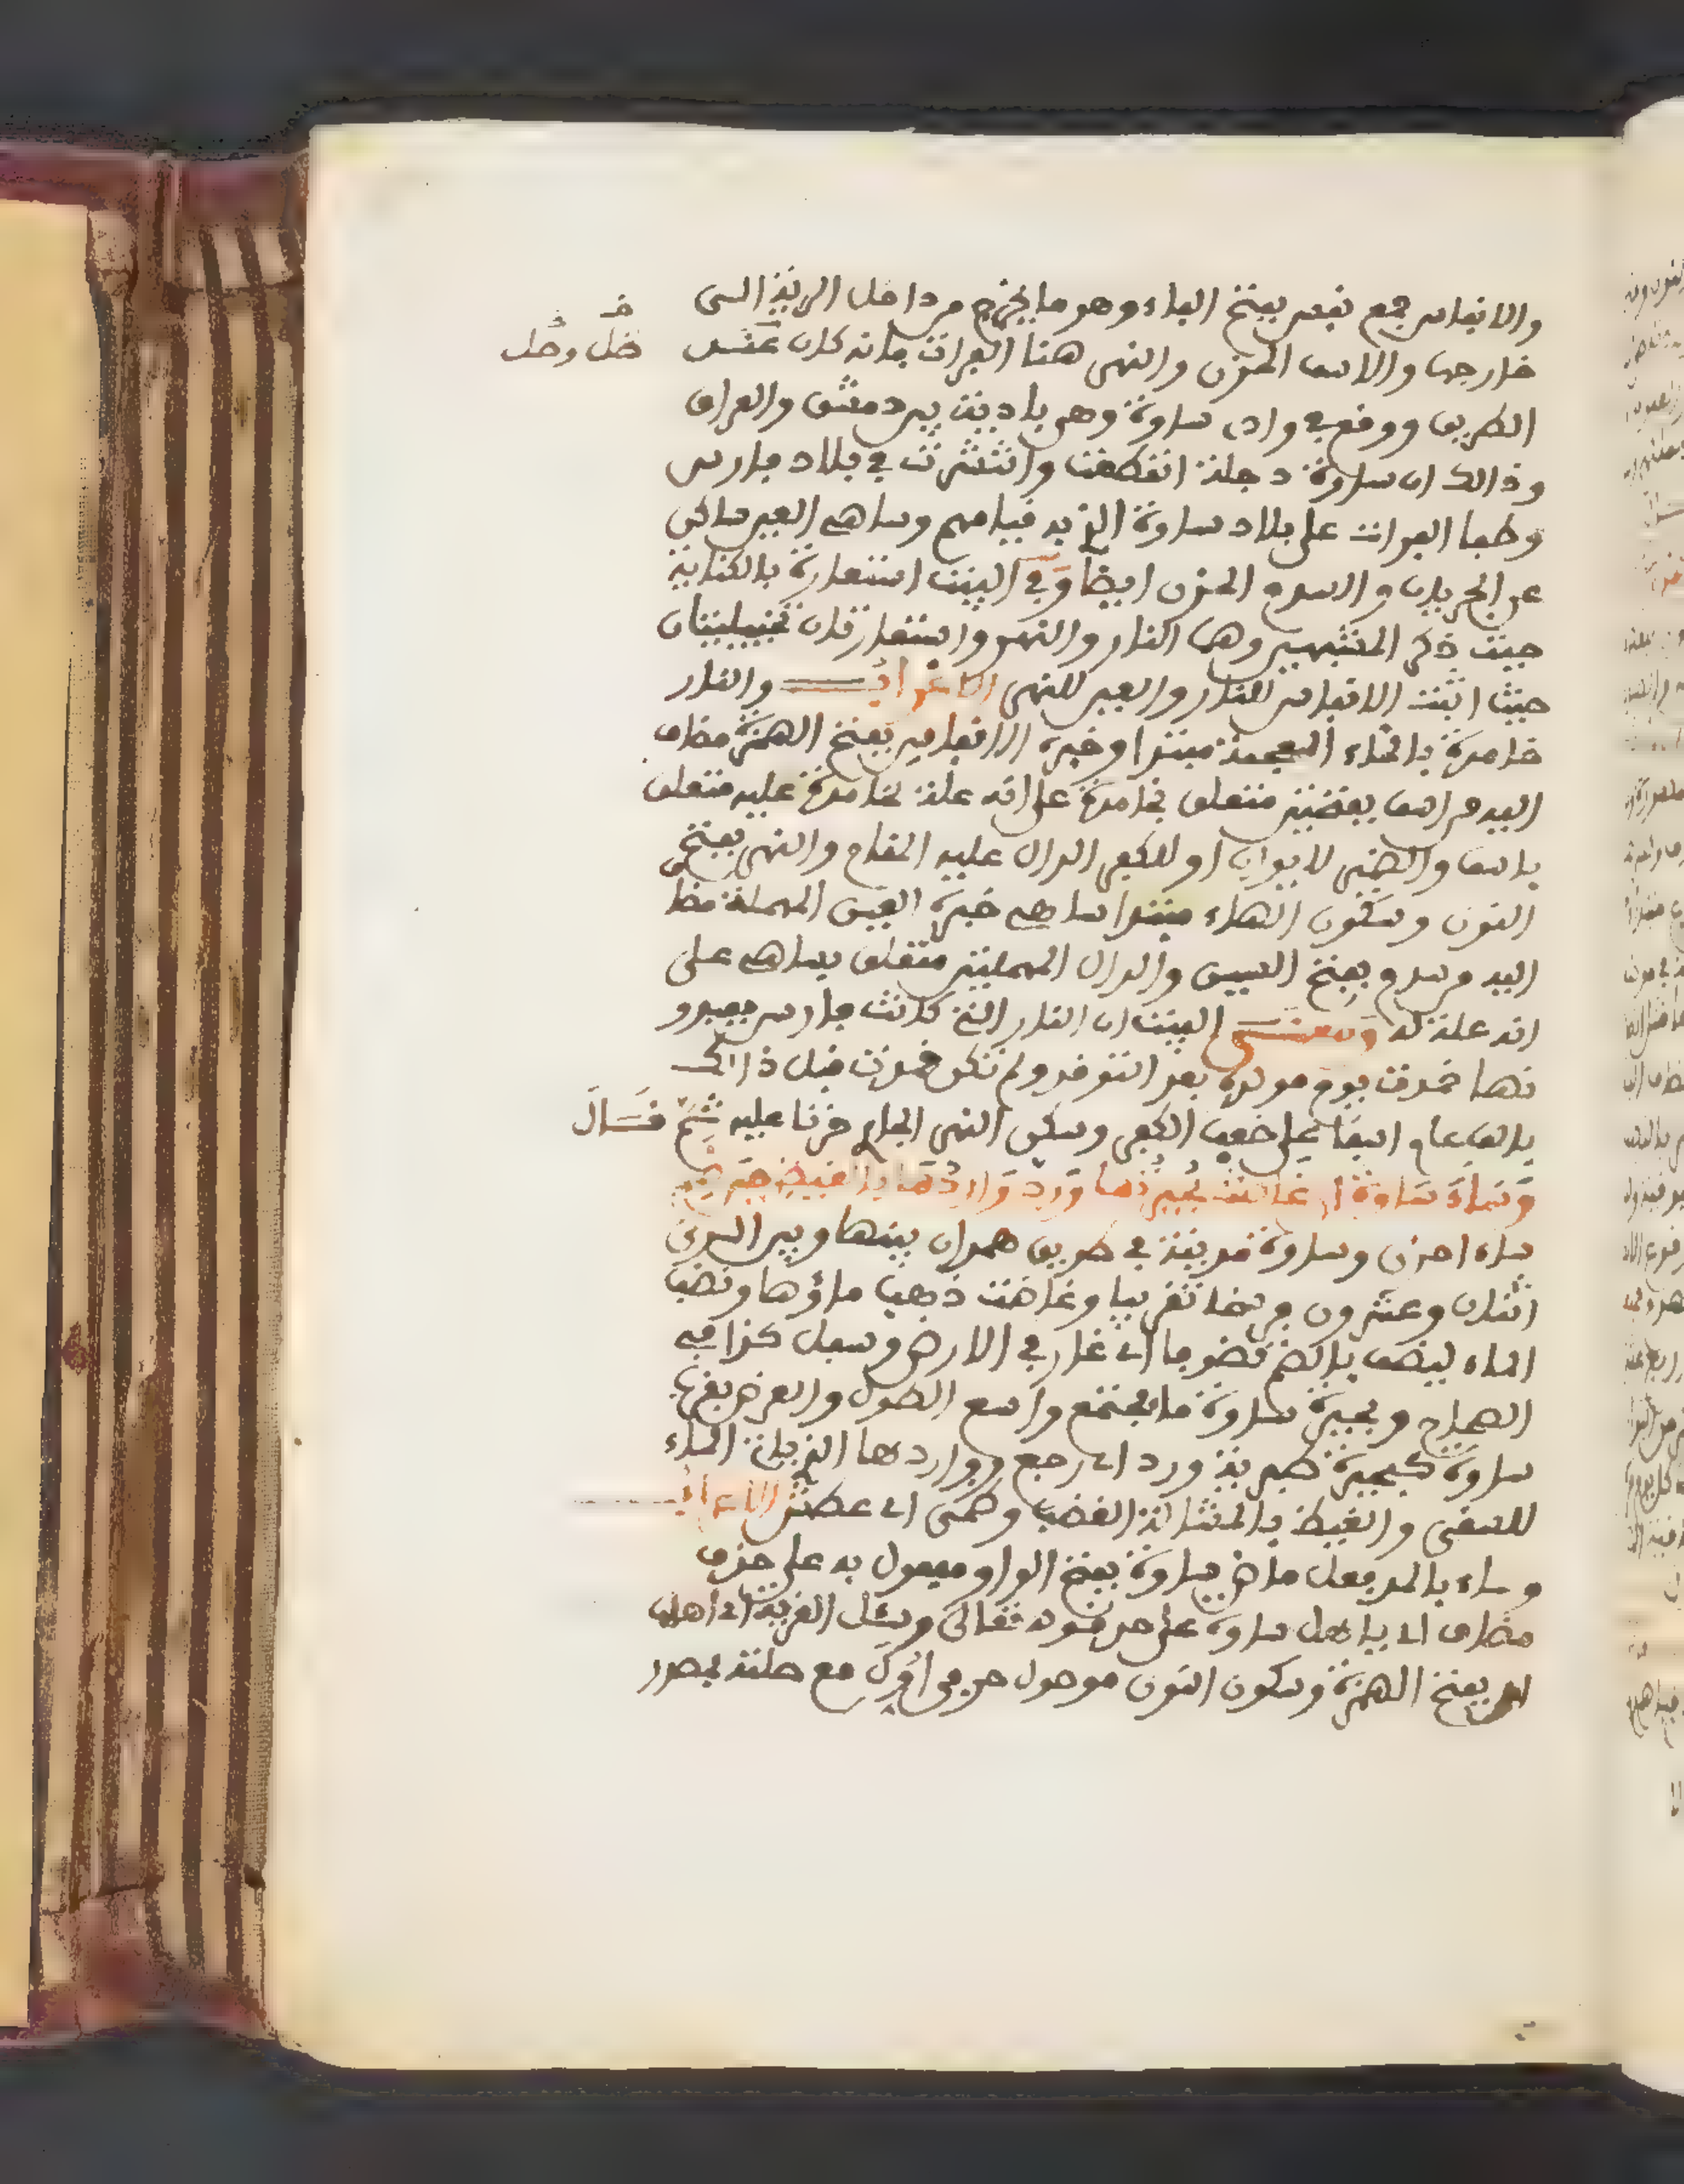 والانفاس جمع نفس بفتح الفاء وهو ما يخرج من داخل الرية الى
خارجها والاسف الحزن والنهر هنا الفرات فانه كان
ضل وحل
الطريق ووقع في وادي ساوة وهي بادية بين دمشق والعراق
وذالك ان ساوة دجلة انقطعت وانتشرت في بلاد فارس
وطفا الفرات على بلاد ساوة وساهي العين ساكن
عن الجريان والسدم الحزن ايضا وفي البيت استعارة بالكناية
حيث ذكر المشبهين وهما النار والنهر واستعارتان تخييليتان
حيث اثبت الانفاس للنار والعين للنهر الاعراب والنار
خامدة بالخاء المعجمة مبتدا وخبره الانفاس بفتح الهمزة مضاف
اليه من اسف بفتحتين متعلق بخامدة على انه علة لخامدة عليه متعلق
باسف والضمير لايوان او للكفر الدال عليه المقام والنهر بفتح
النون وسكون الهاء مبتدا ساهي خبره العين المهملة مضا
اليه من سدم بفتح السين والدال المهملتين متعلق بساهي على
انه علة له ومعنى البيت ان النار التي كانت فارس يعبدو
نها خمدت يوم مولده بعد التوقد ولم تكن خمدت قبل ذالك
بالف عام اسفا على ضعف الكفر وسكن النهر الجاري حزنا عليه ثم قال
وساء ساوة ان غاضت بحيرتها ورد واردها بالغيظ حين ظمي
ساء احزن وساوة مدينة في طريق همدان بينها وبين الري
اثنان وعشرون فرسخا تقريبا وغاضت ذهب ماؤها ونضب
الماء ينضب بالضم نضوبا اي غار في الارض وسفل كذا في
الصحاح وبحيرة ساوة ماء مجتمع واسع الطول والعرض بقرب
ساوة كبحيرة طبرية ورد اي رجع وواردها الذي ياتي الماء
للسقي والغيظ بالمشالة الغضب وظمي اي عطش الاعراب
وساء بالمد فعل ماض ساوة بفتح الواو مفعول به على حذف
مضاف اي باهل ساوة على حد قوله تعالى وسئل القرية اي اهلها
ان بفتح الهمزة وسكون النون موصول حرفي اول مع صلته بمصدر